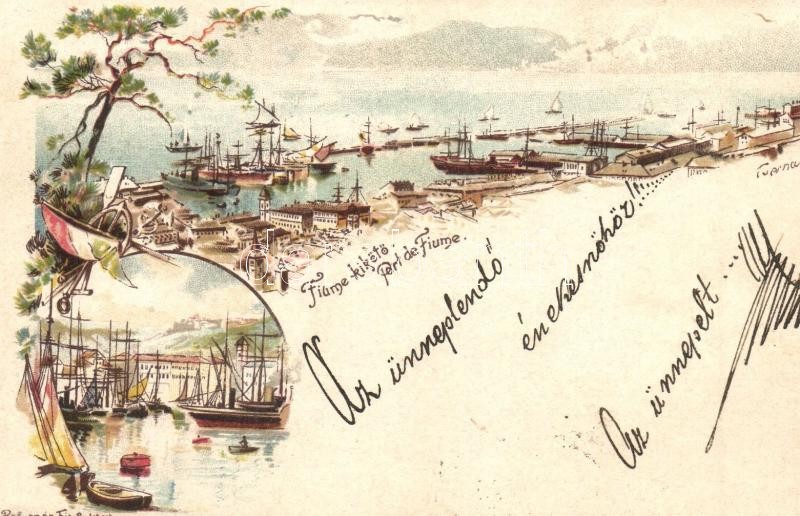 Fiume-kikötő.
Port de Fiume.
Az ünneplendő
énekesnőhöz!!
Az ünnepelt